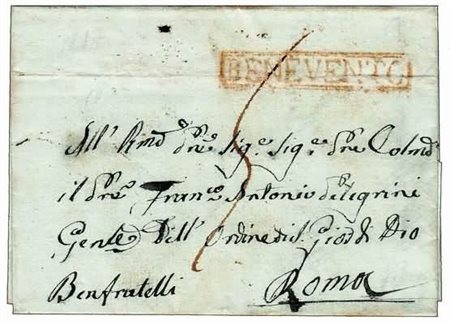 BENEVENTO
5
All' Rmo. Pre. Sige. Sige. Pre. Colmo.
il Pre. Franco. Antonio Pelegrini
Genle. Dell' Ordine di S. Gio: di Dio
Benfratelli Roma